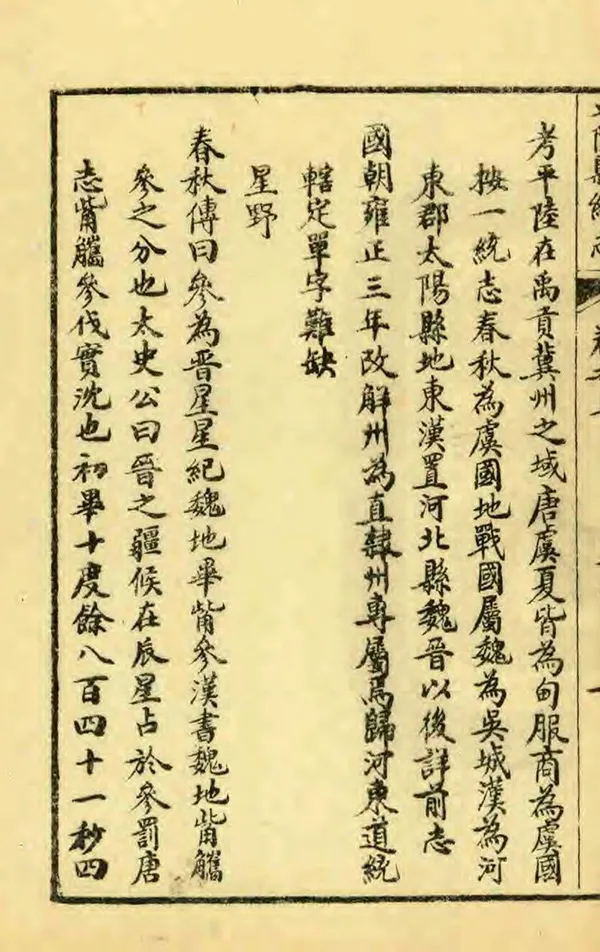 陸縣續志
考平陸在禹貢冀州之域唐虞夏皆為甸服商為虞國
按一統志春秋為虞國地戰國屬魏為吳城漢為河
東郡太陽縣地東漢置河北縣魏晉以後詳前志
國朝雍正三年改解州為直隸州專屬焉歸河東道統
轄定單字難缺
星野
春秋傳曰參為晉星星紀魏地畢觜參漢書魏地觜觿
參之分也太史公曰晉之疆候在辰星占於參罰唐
志觜觿參伐實沈也初畢十度餘八百四十一秒四